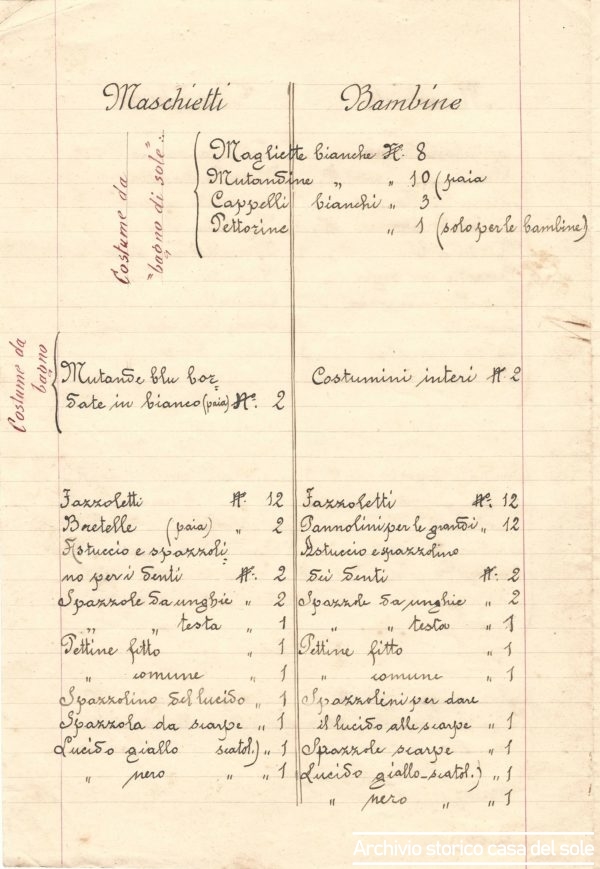 Maschietti
Bambine
Costume da
"bagno di sole"
Magliette bianche N. 8
Mutandine " " 10 (paia
Cappelli bianchi " 3
Pettorine " 1 (solo per le bambine)
Costume da
bagno
Mutande blu bor=
date in bianco (paia) N. 2
Costumini interi N. 2
Fazzoletti N. 12
Bretelle (paia) " 2
Astuccio e spazzoli=
no per i denti N. 2
Spazzole da unghie " 2
" " testa " 1
Pettine fitto " 1
" comune " 1
Spazzolino del lucido " 1
Spazzola da scarpe " 1
Lucido giallo scatol.) " 1
" nero " " 1
Fazzoletti N. 12
Pannolini per le grandi " 12
Astuccio e spazzolino
dei denti N. 2
Spazzole da unghie " 2
" " testa " 1
Pettine fitto " 1
" comune " 1
Spazzolini per dare
il lucido alle scarpe " 1
Spazzole scarpe " 1
Lucido giallo-scatol.) " 1
" nero " " 1
Archivio storico casa del sole